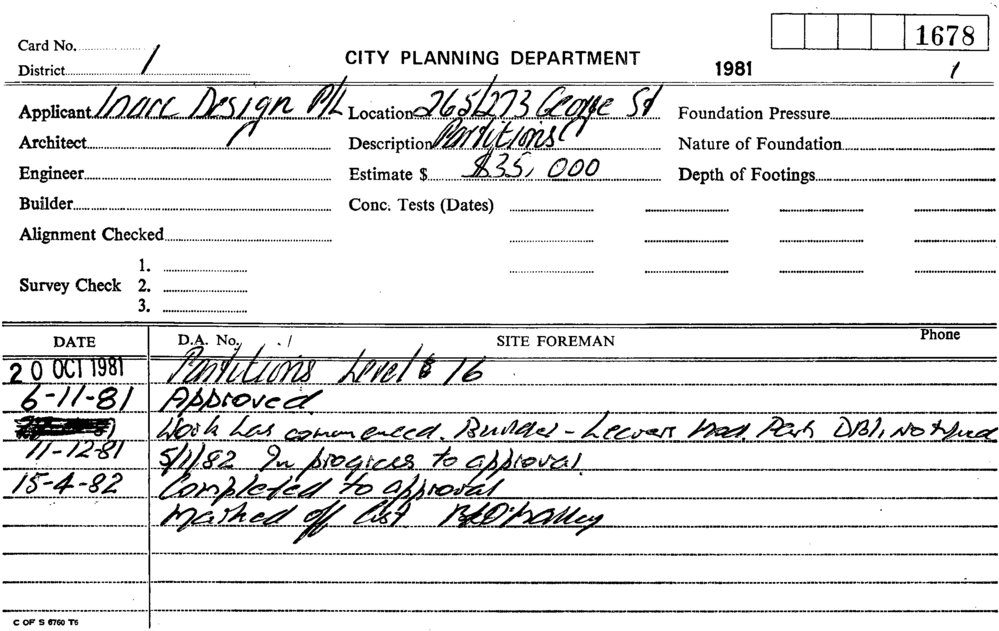 1678
Card No. /
CITY PLANNING DEPARTMENT
District
1981 1
Applicant Inarc Design P/L Location 265/273 George St Foundation Pressure
Architect Description Partitions Nature of Foundation
Engineer Estimate $ $35,000 Depth of Footings
Builder Conc. Tests (Dates)
Alignment Checked
1.
Survey Check 2.
3.
DATE D.A. No. / SITE FOREMAN Phone
20 OCT 1981 Partitions Level 16
6-11-81 Approved.
Work has commenced. Builder - Notified
11-12-81 5/1/82 In progress to approval.
15-4-82 Completed to approval
Marked off List
C OF S 6760 T6